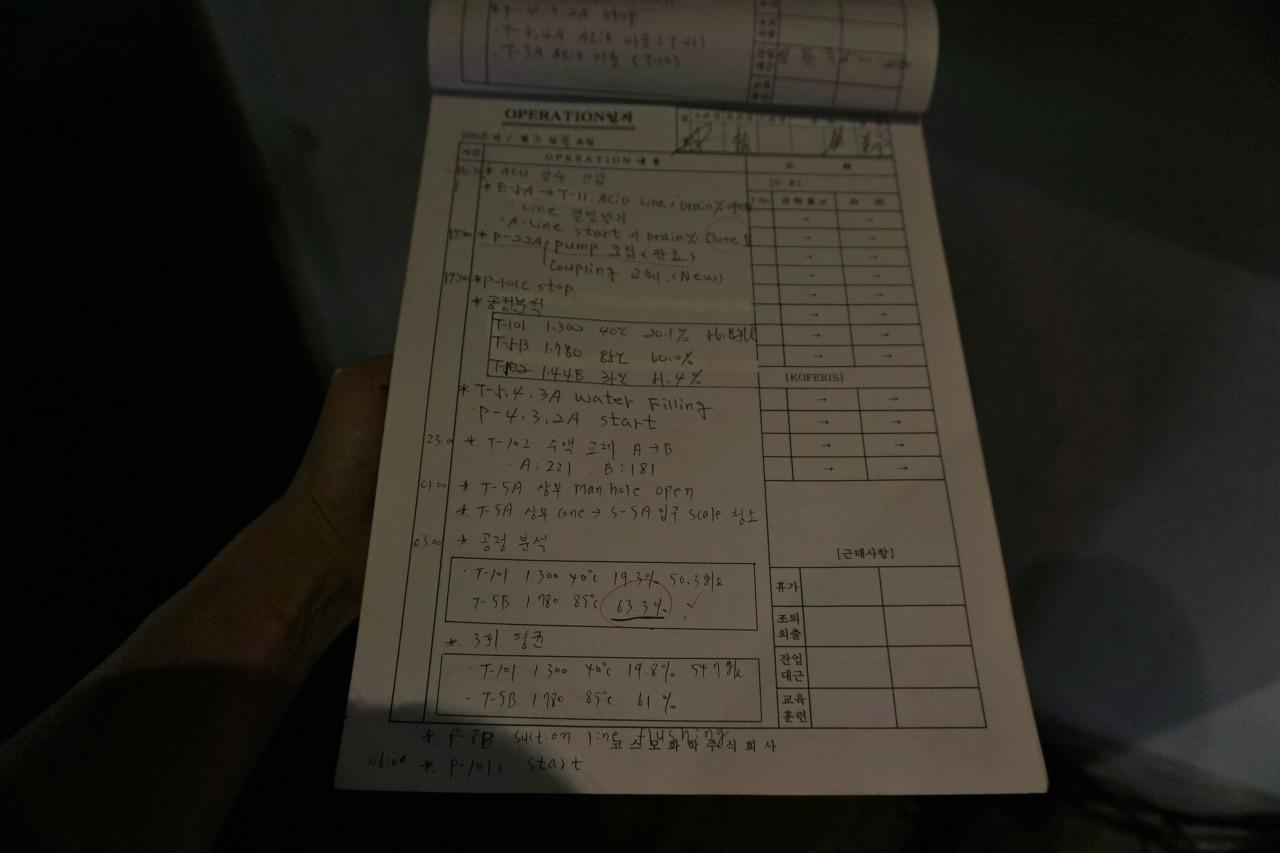 * P-4.3.2A stop
· T-5.4A ACiD 이송 (T-21)
· T-3A ACiD 이송 (T-19)
OPERATION일지
시간 OPERATION 내용
* ACH
* E-5A → T-11 ACiD Line / Drain% open
· Line
· A-Line start 시 Drain% Close
19:00 * P-22A pump 조립 (완료)
Coupling 교체. (New)
19:00 * P-101C stop
* 공정분석
T-101 1.300 40℃ 20.1% 56.8g/l
T-5B 1.780 85℃ 60.0%
T-102 1.448
* T-5.4.3A water Filling
· P-4.3.2A start
23:0 * T-102 수액 교체 A→B
· A:221 B:181
01:00 * T-5A 상부 Manhole open
* T-5A 상부 cone → S-5A 입구 scale 청소
03:00 * 공정 분석
· T-101 1.300 40℃ 19.3% 50.3g/l
· T-5B 1.780 85℃ 63.3%
* 3회 평균
· T-101 1.300 40℃ 19.8% 54.7g/l
- T-5B 1.780 85℃ 61%
* P-8B suction line flushing
06:00 * P-101C start
[KOFERIS]
[근태사항]
휴가
조퇴
외출
잔업
대근
교육
훈련
코스모화학주식회사